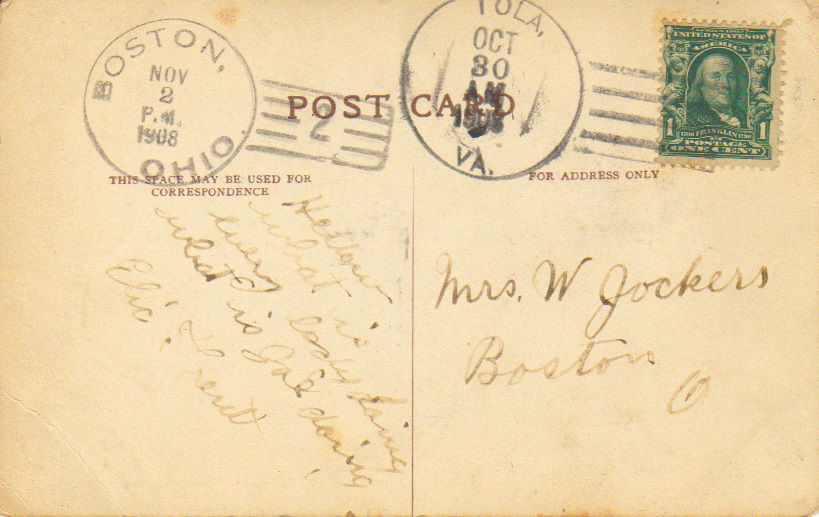 BOSTON,
NOV
2
P.M.
1908
OHIO.
2
TOLA,
OCT
30
AM
1908
VA.
POST CARD
SERIES 1902
UNITED STATES OF
AMERICA
1 1706 FRANKLIN 1790 1
POSTAGE
ONE CENT
THIS SPACE MAY BE USED FOR
CORRESPONDENCE
FOR ADDRESS ONLY
Hellow
what is
every body doing
what is Joe doing
Mrs. W Jockers
Boston
O